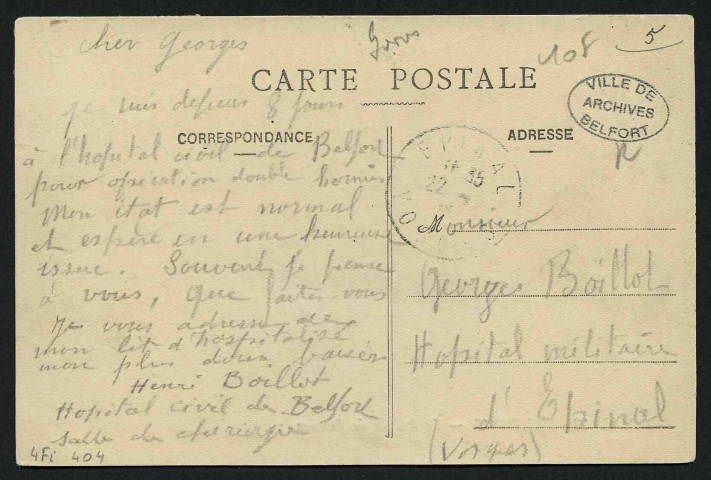 cher Georges
108
5
CARTE POSTALE
VILLE DE
ARCHIVES
BELFORT
je suis depuis 8 jours
CORRESPONDANCE
ADRESSE
à l'hopital civil de Belfort
pour opération double hernie
Mon état est normal
et espère en une heureuse
issue. Souvent je pense
à vous, que faites-vous
Je vous adresse de
mon lit d'hospitalisé
mon plus doux baiser
Henri Boillot
Hopital civil de Belfort
salle de chirurgie
4Fi 404
EPINAL
Monsieur
Georges Boillot
Hopital militaire
d'Epinal
(Vosges)